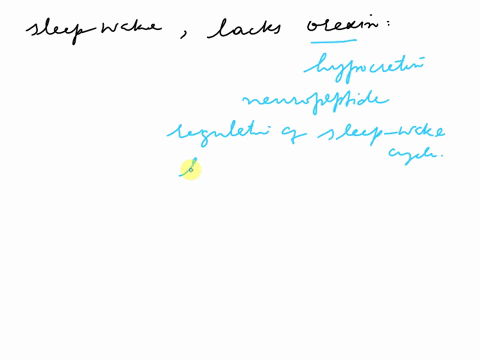 sleep wake, lacks orexin:
hypocretin
neuropeptide
regulation of sleep-wake
cycle.